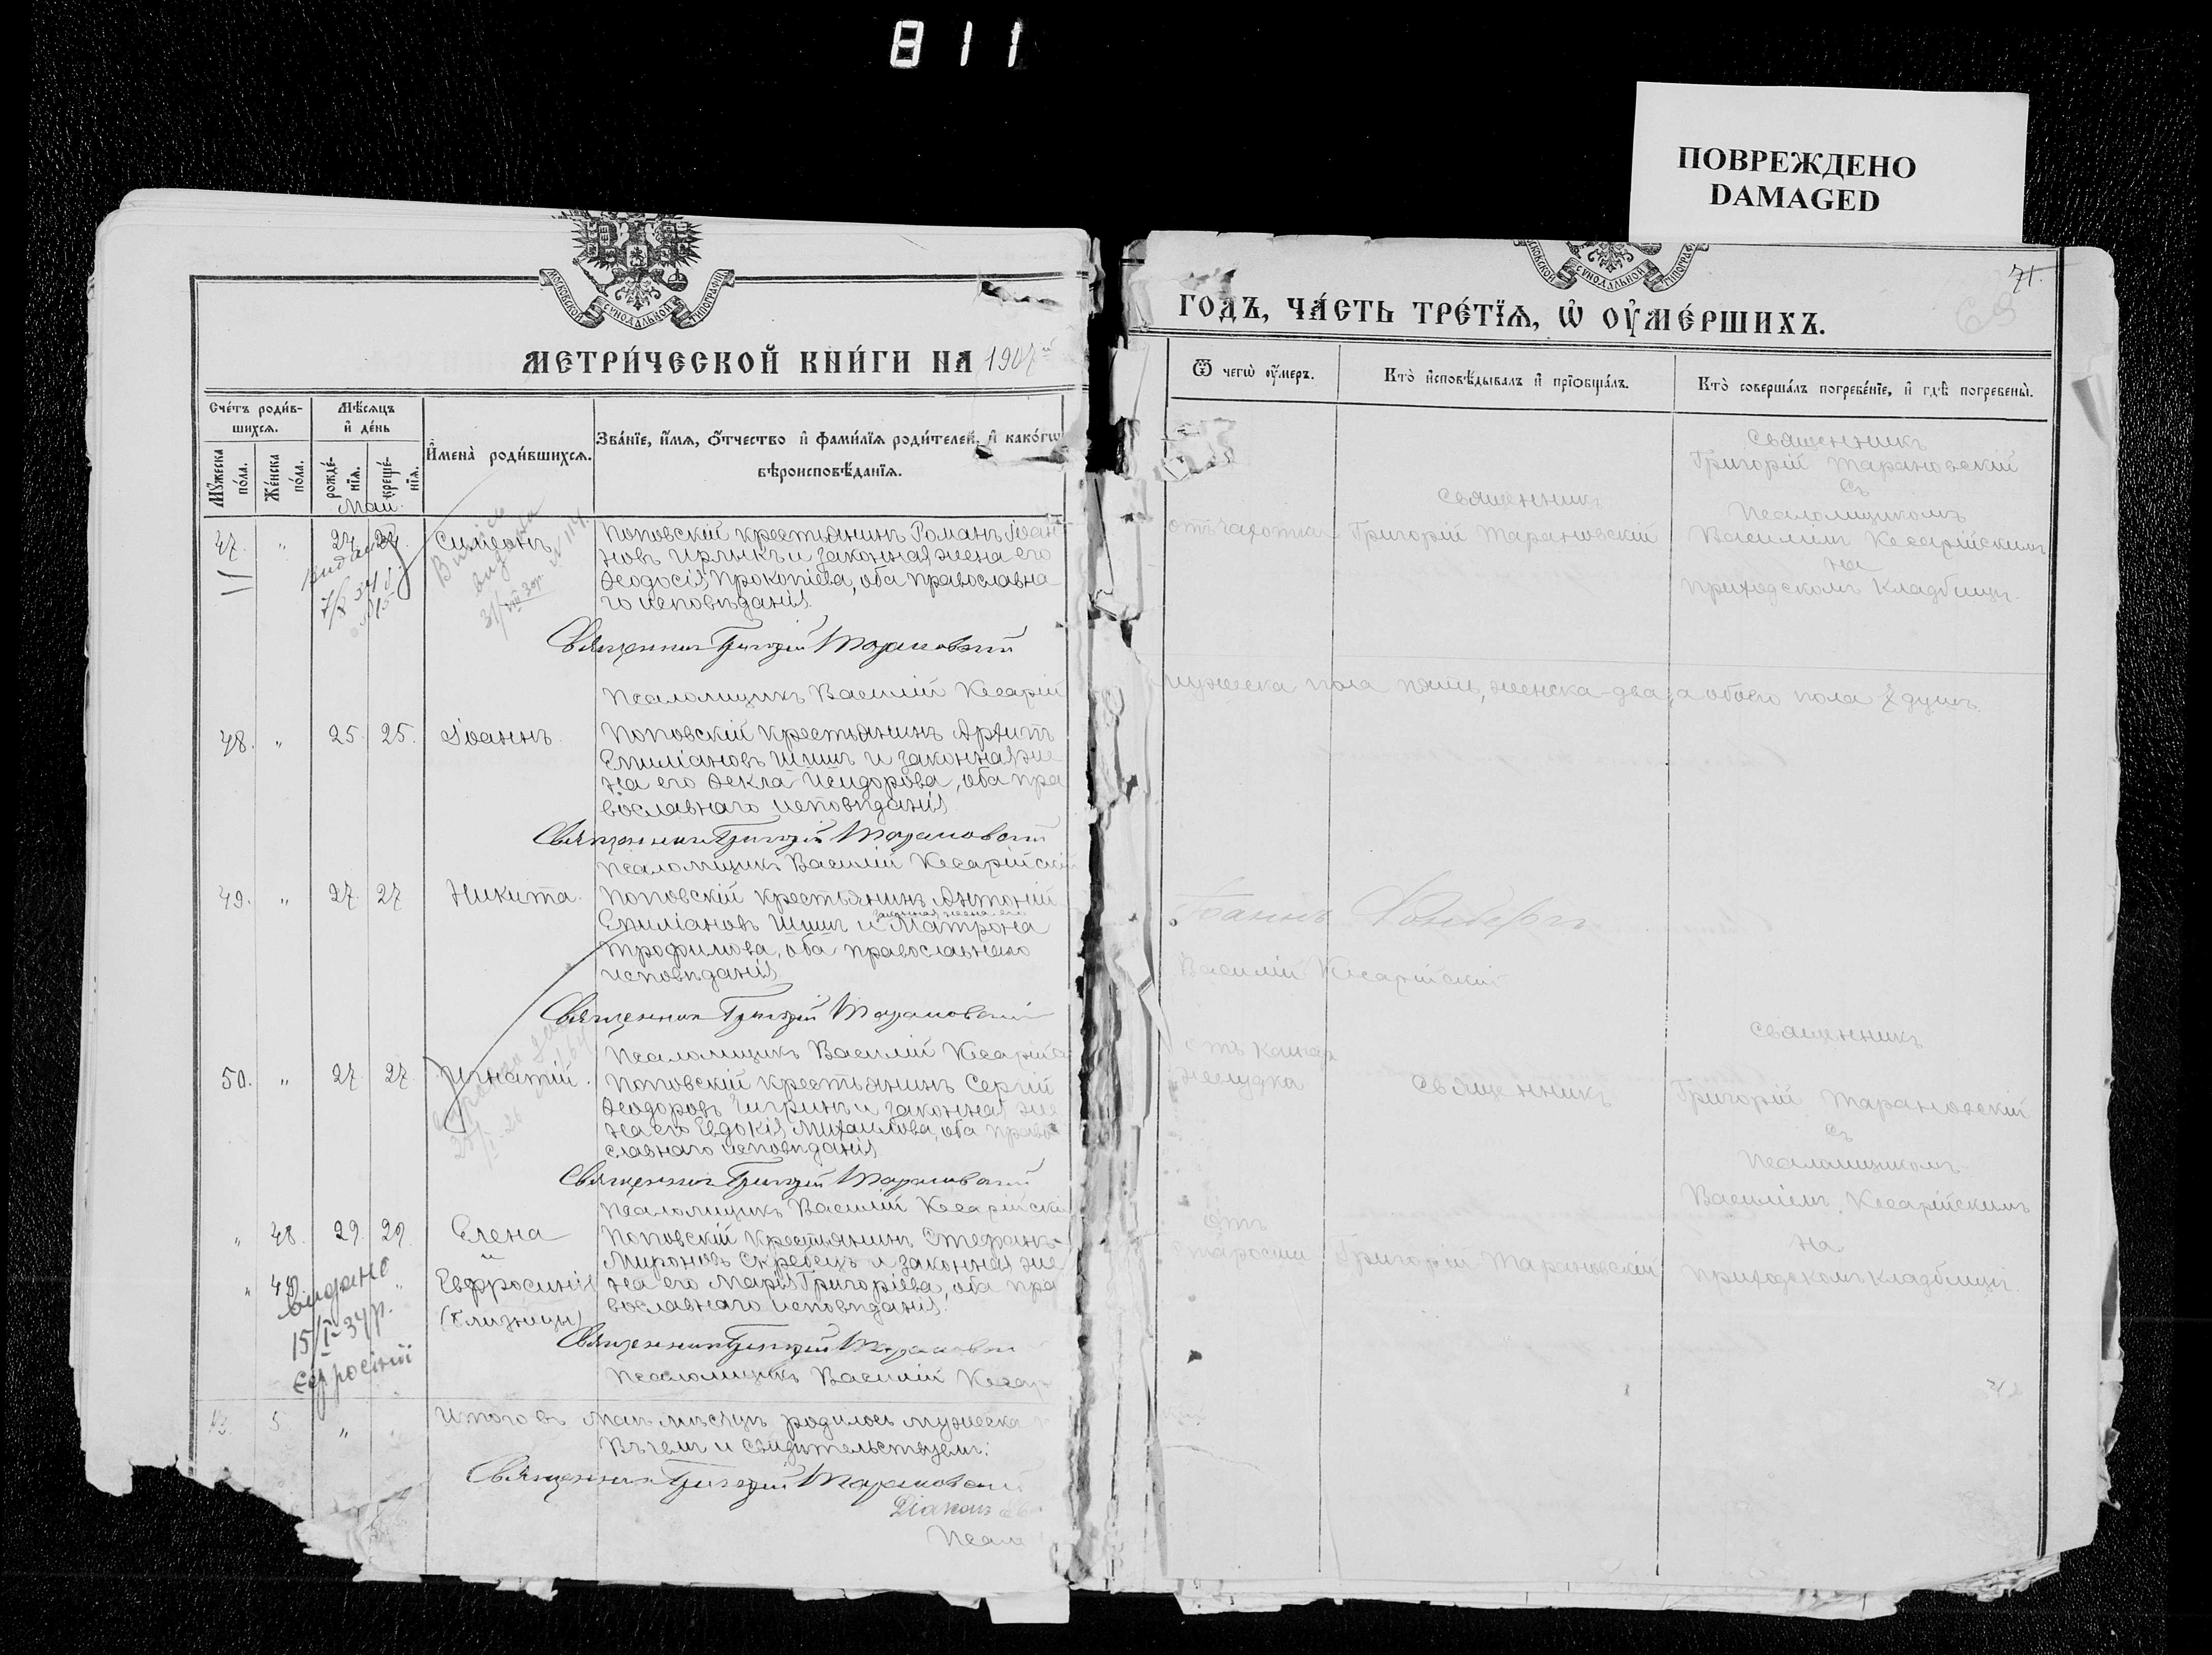 811
ПОВРЕЖДЕНО
DAMAGED
МОСКОВСКОЙ СѴНОДАЛЬНОЙ ТИПОГРАФІИ
МЕТРИ́ЧЕСКОЙ КНИ́ГИ НА 1907й
Сче́тъ роди́в-
шихсѧ.
Мꙋ́жеска
по́ла.
Же́нска
по́ла.
Мѣ́сѧцъ
и҆ де́нь
рожде́-
нїѧ.
креще́-
нїѧ.
И҆мена̀ роди́вшихсѧ.
Зва́нїе, и҆́мѧ, ѻ҆́тчество и҆ фами́лїѧ роди́телей, и҆ како́гѡ
вѣроисповѣ́данїѧ.
Май.
47. " 24. Симеонъ
Поповскій крестьянинъ Романъ Іоан
новъ Ирлыкъ и законная жена его
Ѳеодосія Прокопіева, оба православна
го исповѣданія.
Священникъ Григорій Тарановскій
Псаломщикъ Василій Кесарій
48. " 25. 25. Іоаннъ.
Поповскій крестьянинъ Архипъ
Емиліановъ Шишъ и законная же
на его Ѳекла Исидорова, оба пра
вославнаго исповѣданія
Священникъ Григорій Тарановскій
Псаломщикъ Василій Кесарійскій
49. " 27. 27 Никита.
Поповскій крестьянинъ Антоній
законная жена его
Емиліановъ Шишъ и Матрона
Трофимова, оба православнаго
исповѣданія
Священникъ Григорій Тарановскій
Псаломщикъ Василій Кесарійс
50. " 27. 27. Игнатій.
Поповскій крестьянинъ Сергій
Ѳеодоровъ Чигринъ и законная же
на его Евдокія Михаилова, оба право
славнаго исповѣданія
Священникъ Григорій Тарановскій
Псаломщикъ Василій Кесарійскі
" 48. 29. 29. Елена
и
" 49 " Евфросинія
(близнецы)
Поповскій крестьянинъ Стефанъ
Мироновъ Скребецъ и законная же
на его Марія Григоріева, оба пра
вославнаго исповѣданія.
видано
15/I-34р.
Священникъ Григорій Тарановскій
Псаломщикъ Василій Кесар
13. 5. " Итого въ маѣ мѣсяцѣ родилось мужеска
Въ чемъ и свидѣтельствуемъ:
Священникъ Григорій Тарановскій
Діаконъ
Псал
МОСКОВСКОЙ СѴНОДАЛЬНОЙ ТИПОГРАФІИ
71.
69
ГОДЪ, ЧА́СТЬ ТРЕ́ТЇѦ, Ѡ҆ ОУ҆МЕ́РШИХЪ.
Ѿ чегѡ̀ оу҆́меръ.
Кто̀ и҆сповѣ́дывалъ и҆ прїѻбща́лъ.
Кто̀ соверша́лъ погребе́нїе, и҆ гдѣ̀ погребены̀.
отъ чахотки
Священникъ
Григорій Тарановскій
Священникъ
Григорій Тарановскій
съ
Псаломщикомъ
Василіемъ Кесарійскимъ
на
приходскомъ кладбищѣ.
мужеска пола пять, женска-два, а обоего пола 7 душъ.
Василій Кесарійскій
желудка
отъ
старости
Священникъ
Григорій Тарановскій
Священникъ
Григорій Тарановскій
съ
Псаломщикомъ
Василіемъ Кесарійскимъ
на
приходскомъ кладбищѣ.